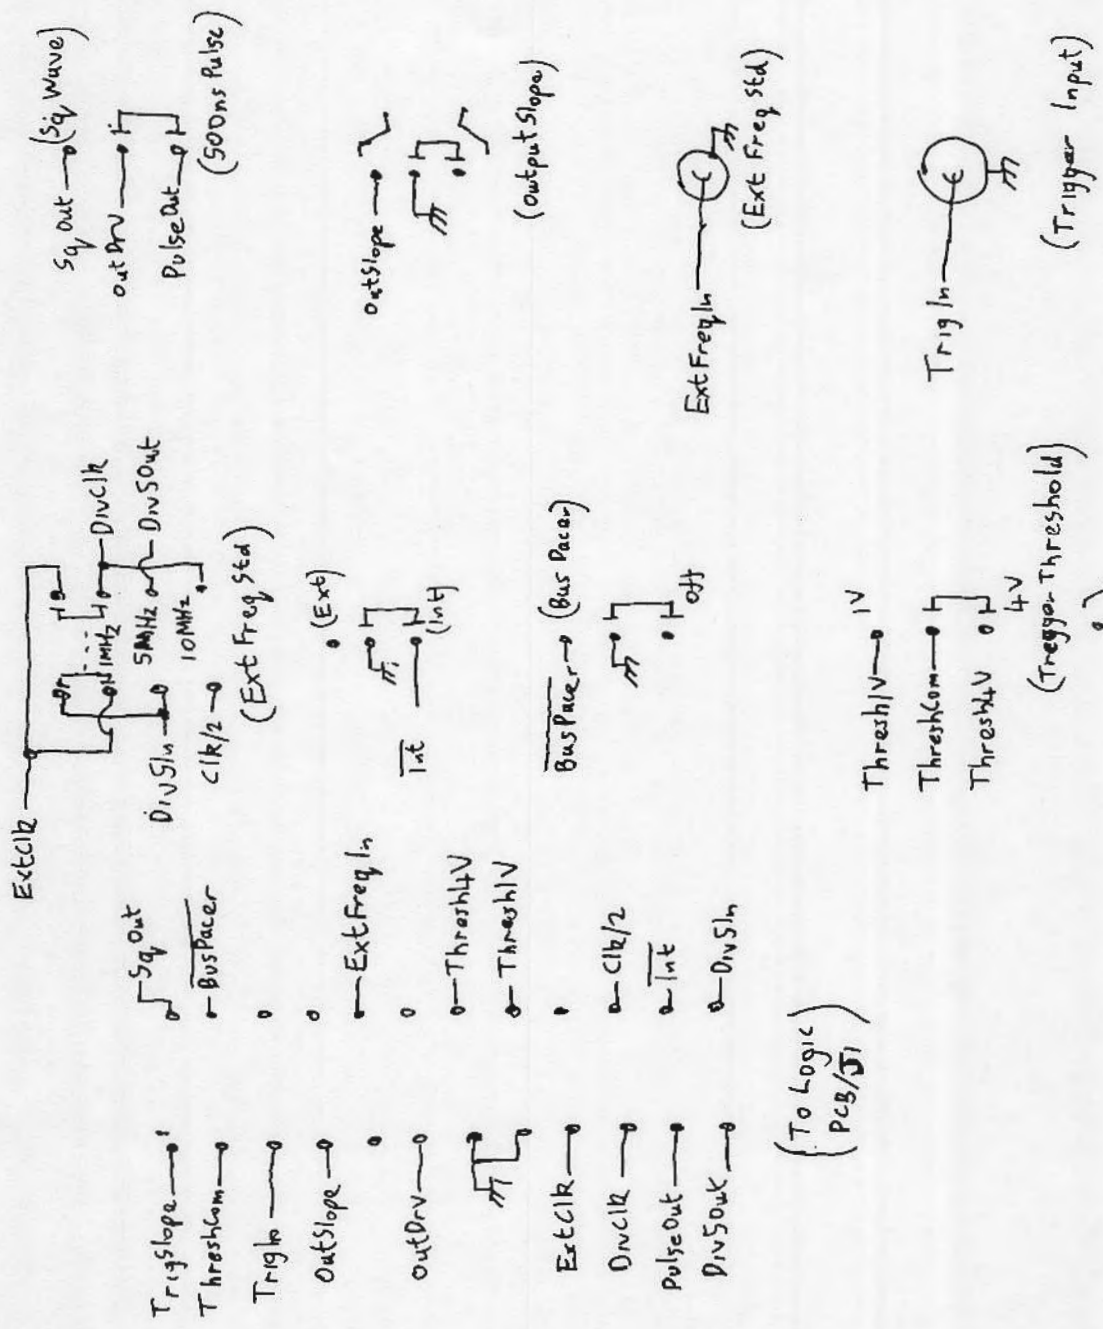 TrigSlope 1
ThreshCom
TrigIn
OutSlope
OutDrv
ExtClk
DivClk
PulseOut
Div5Out
(To Logic
PCB/J1)
SqOut
BusPacer
ExtFreqIn
Thresh4V
Thresh1V
Clk/2
Int
Div5In
ExtClk
1MHz
DivClk
Div5In
5MHz
Div5Out
Clk/2
10MHz
(Ext Freq Std)
(Ext)
Int
(Int)
BusPacer
(Bus Pacer)
Off
Thresh1V
1V
ThreshCom
Thresh4V
4V
(Tregger Threshold)
Sq Out
(Sq Wave)
OutDrv
PulseOut
(500ns Pulse)
OutSlope
(Output Slope)
ExtFreqIn
(Ext Freq Std)
TrigIn
(Trigger Input)